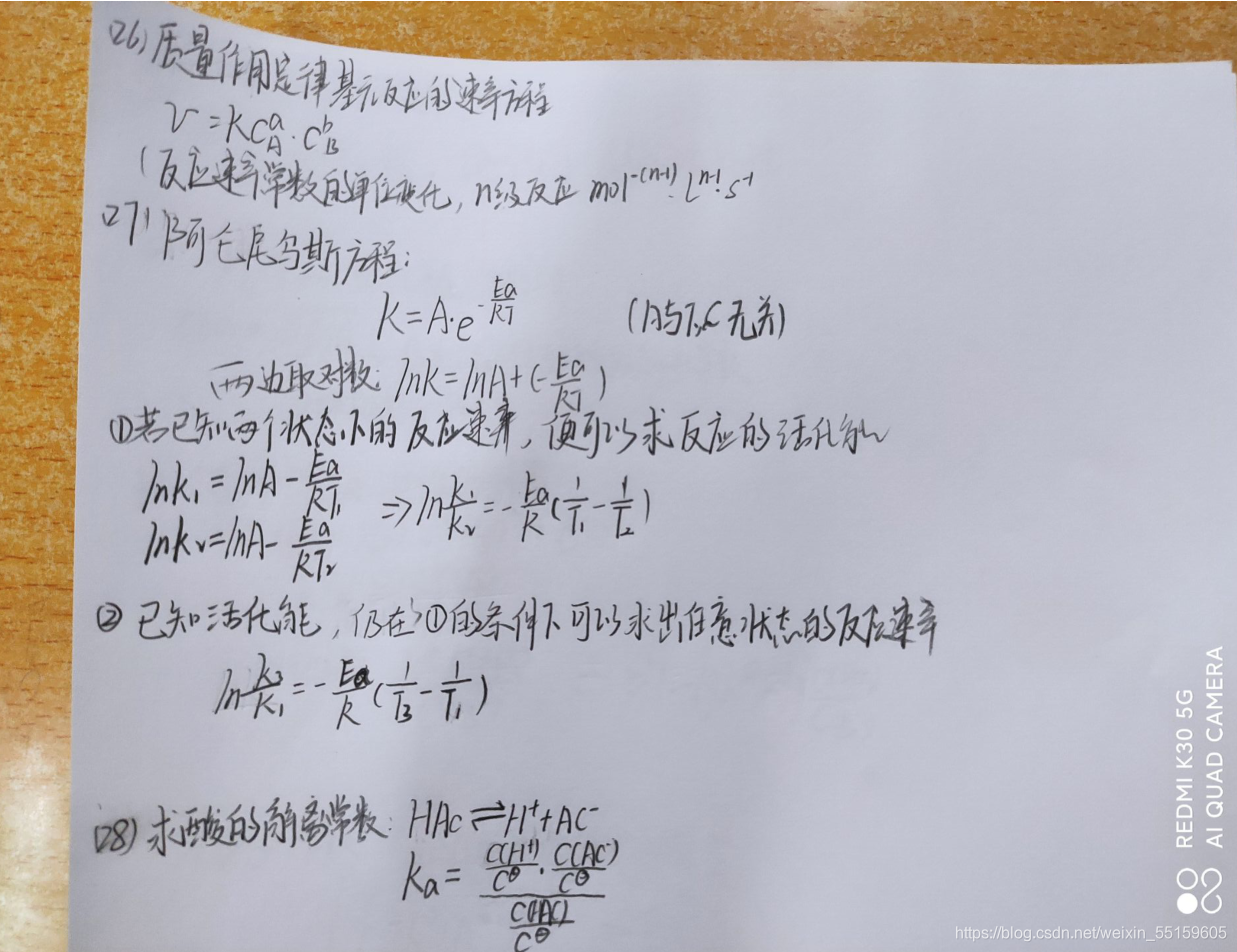 (26) 质量作用定律基元反应的速率方程
v = kC_A^a · C_B^b
(反应速率常数的单位变化, n级反应 mol^-(n-1) · L^n-1 · s^-1
(27) 阿仑尾乌斯方程:
k = A·e^-Ea/RT (A与T、C无关)
两边取对数: lnk = lnA + (-Ea/RT)
①若已知两个状态下的反应速率, 便可以求反应的活化能
lnk₁ = lnA - Ea/RT₁
lnk₂ = lnA - Ea/RT₂
⇒ ln k₁/k₂ = -Ea/R (1/T₁ - 1/T₂)
② 已知活化能, 仍在①的条件下可以求出任意状态的反应速率
ln k₃/k₁ = -Ea/R (1/T₃ - 1/T₁)
(28) 求酸的解离常数: HAc ⇌ H⁺ + AC⁻
Ka = (C(H⁺)/C^θ · C(AC⁻)/C^θ) / (C(HAC)/C^θ)
REDMI K30 5G
AI QUAD CAMERA
https://blog.csdn.net/weixin_55159605